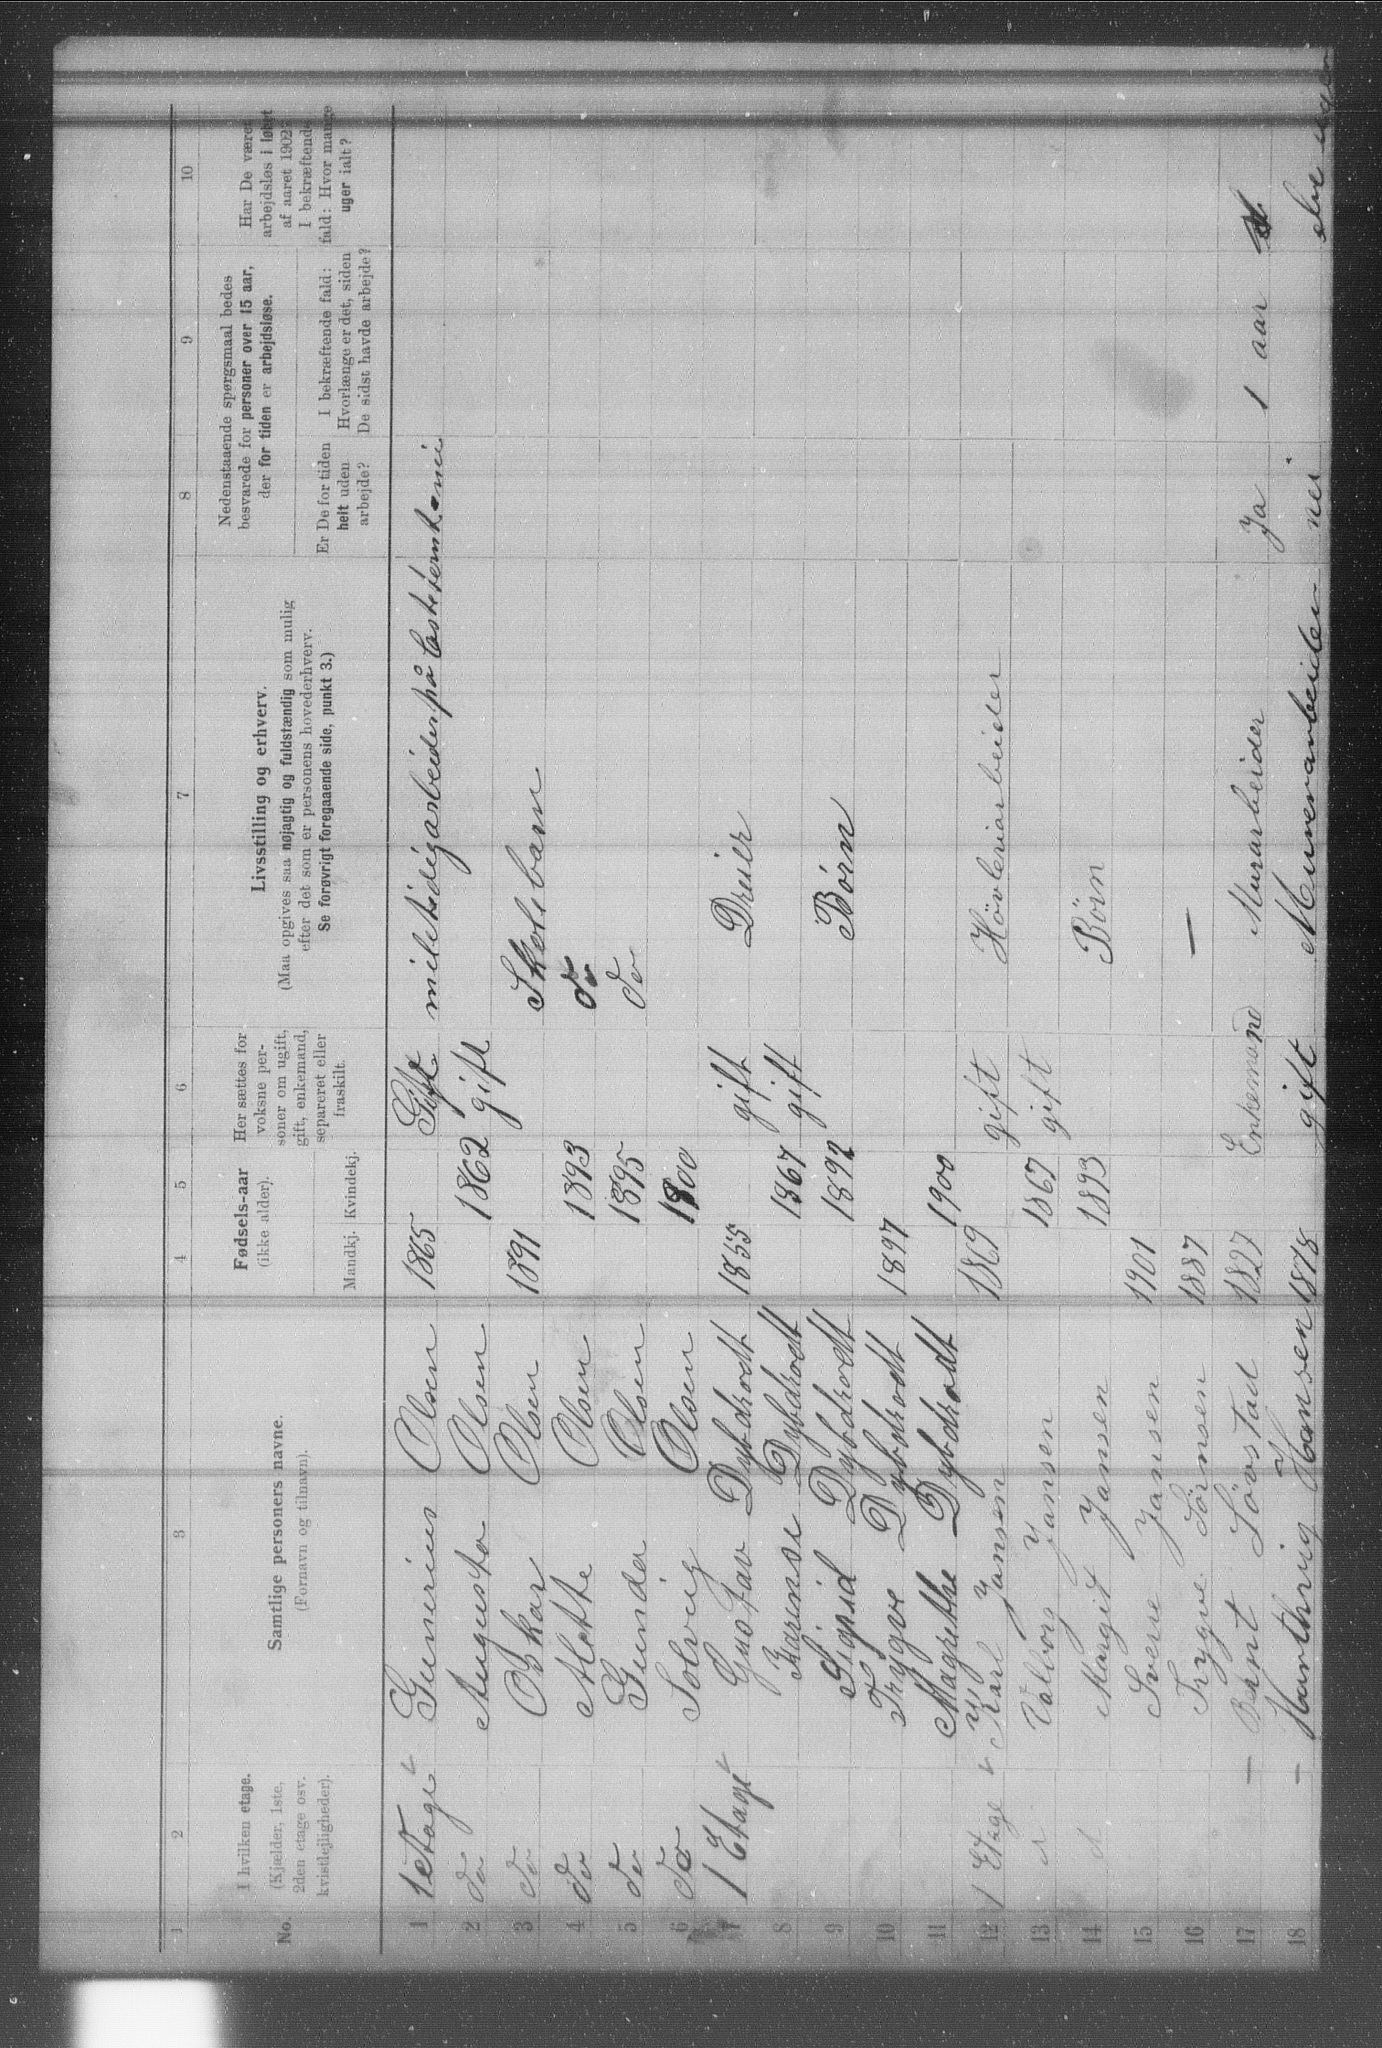 1 2 3 4 5 6 7 8 9 10
No.
I hvilken etage.
(Kjælder, 1ste,
2den etage osv.
kvistlejligheder).
Samtlige personers navne.
(Fornavn og tilnavn).
Fødsels-aar
(ikke alder).
Mandkj. Kvindekj.
Her sættes for
voksne per-
soner om ugift,
gift, enkemand,
separeret eller
fraskilt.
Livsstilling og erhverv.
(Maa opgives saa nøjagtig og fuldstændig som mulig
efter det som er personens hovederhverv.
Se forøvrigt foregaaende side, punkt 3.)
Nedenstaaende spørgsmaal bedes
besvarede for personer over 15 aar,
der for tiden er arbejdsløse.
Er De for tiden
helt uden
arbejde?
I bekræftende fald:
Hvorlænge er det, siden
De sidst havde arbejde?
Har De været
arbejdsløs i løbet
af aaret 1902?
I bekræftende
fald: Hvor mange
uger ialt?
1 1 Etage Gunerius Olsen 1865 Gift arbeider på
2 do Augusta Olsen 1862 gift
3 do Oskar Olsen 1891 Skolebarn
4 do Alette Olsen 1893 do
5 do Gunda Olsen 1895 do
6 do Solveig Olsen 1900
7 1 Etage Gustav Dybdrodt 1855 gift Dreier
8 Karense Dybdrodt 1867 gift
9 Sigrid Dybdrodt 1892 Börn
10 Trygve Dybdrodt 1897
11 Magrethe Dybdrodt 1900
12 1 Etage Karl Jansen 1869 gift Hövleriarbeider
13 Valborg Jansen 1867 gift
14 Margit Jansen 1893 Börn
15 Sverre Jansen 1901
16 Trygve Sörnsen 1887 —
17 — Bernt Sövstad 1827 Enkemand Murarbeider Ja 1 aar
18 — Hansen 1878 gift Murerarbeider nei